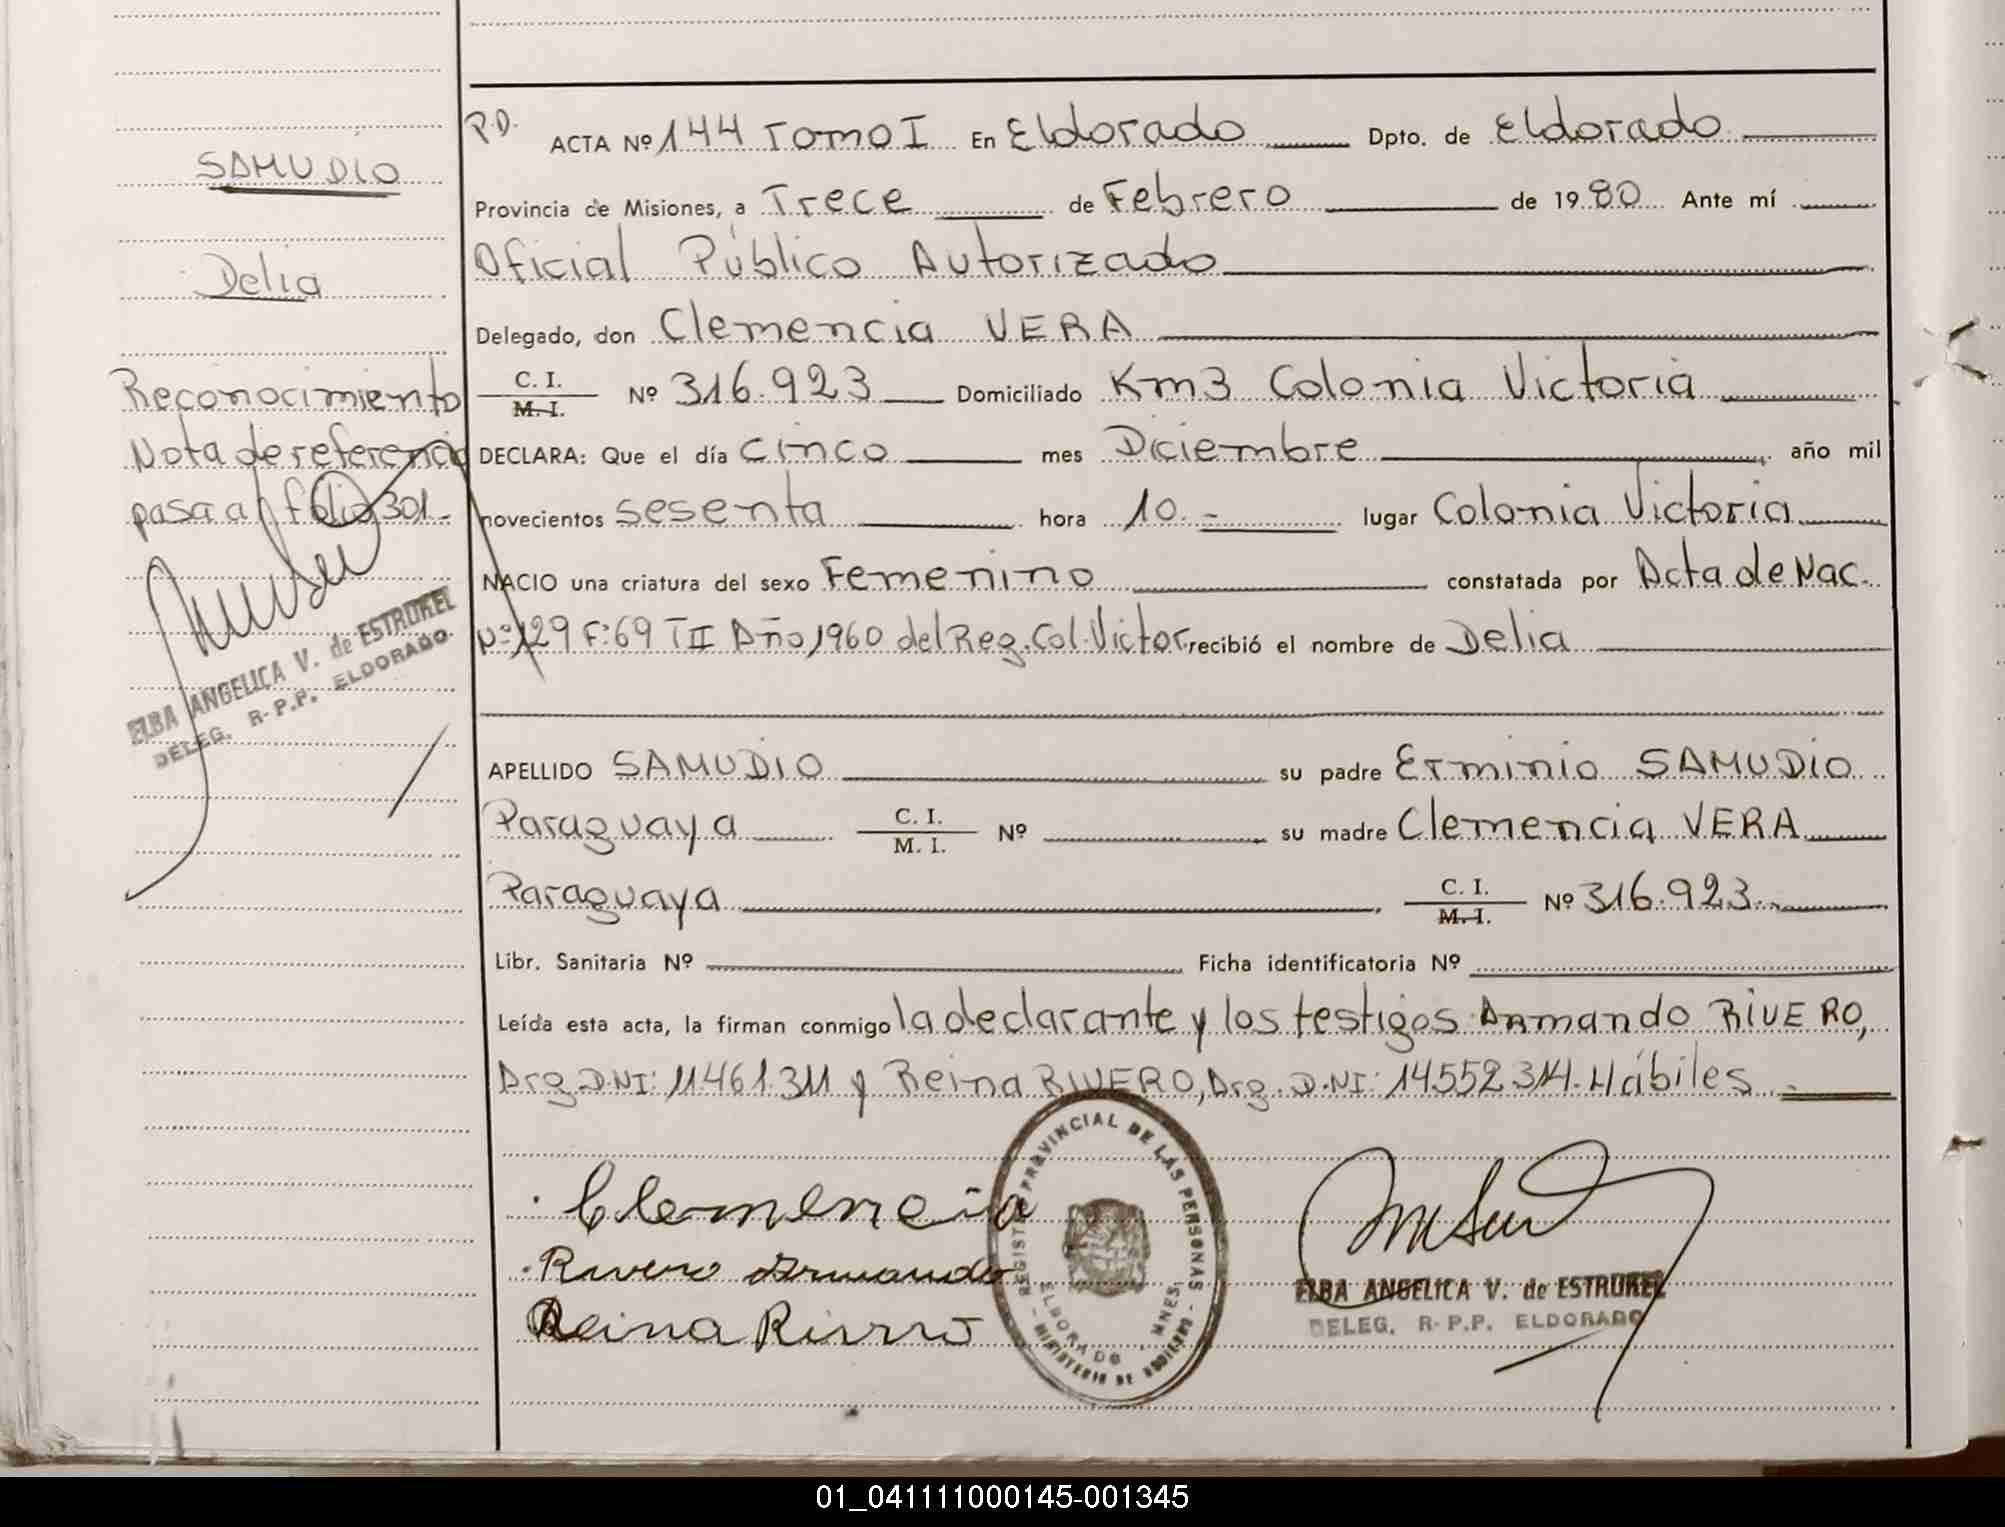 SAMUDIO
Delia
Reconocimiento
Nota de referencia
pasa al folio 301.-
ELBA ANGELICA V. de ESTRUKEL
DELEG. R-P.P. ELDORADO
P.D. ACTA Nº 144 Tomo I En Eldorado Dpto. de Eldorado
Provincia de Misiones, a Trece de Febrero de 1980 Ante mí
Oficial Público Autorizado
Delegado, don Clemencia VERA
C. I. / M. I. Nº 316.923 Domiciliado Km3 Colonia Victoria
DECLARA: Que el día cinco mes Diciembre año mil
novecientos sesenta hora 10.- lugar Colonia Victoria
NACIO una criatura del sexo Femenino constatada por Acta de Nac.
Nº:129 F:69 TII Año 1960 del Reg. Col. Victor. recibió el nombre de Delia
APELLIDO SAMUDIO su padre Erminio SAMUDIO
Paraguaya C. I. / M. I. Nº su madre Clemencia VERA
Paraguaya, C. I. / M. I. Nº 316.923.
Libr. Sanitaria Nº Ficha identificatoria Nº
Leída esta acta, la firman conmigo la declarante y los testigos Armando RIVERO,
Arg. D.NI: 11.461.311 y Reina RIVERO, Arg. D.NI: 14.552.314. Hábiles.-
Clemencia
Rivero Armando
Reina Rivero
REGISTRO PROVINCIAL DE LAS PERSONAS
ELDORADO MNES.
MINISTERIO DE GOBIERNO
ELBA ANGELICA V. de ESTRUKEL
DELEG. R-P.P. ELDORADO
01_041111000145-001345